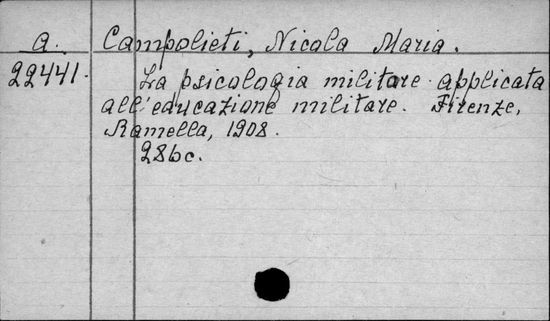 a. Campolieti, Nicola Maria.
22441. La psicologia militare applicata
all'educazione militare. Firenze,
Ramella, 1908.
286c.